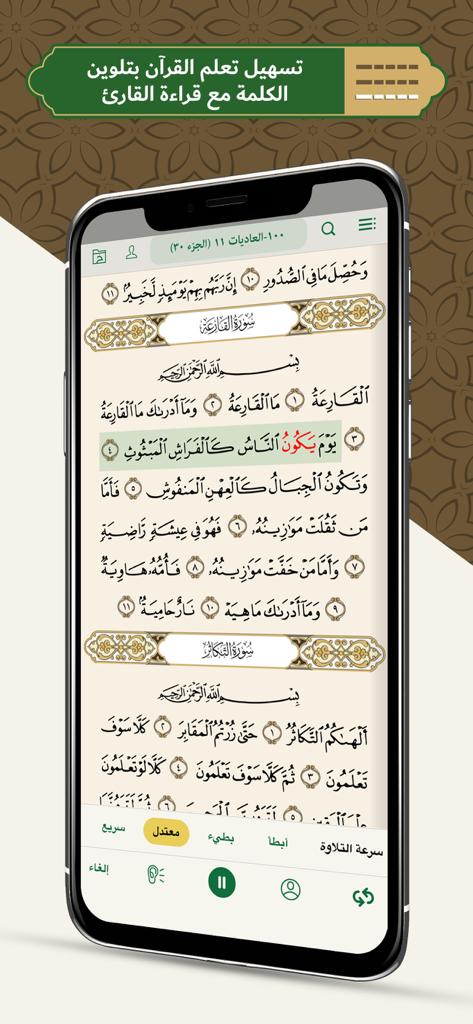 تسهيل تعلم القرآن بتلوين
الكلمة مع قراءة القارئ
١٠٠-العاديات ١١ (الجزء ٣٠)
وَحُصِّلَ مَا فِي ٱلصُّدُورِ ١٠ إِنَّ رَبَّهُم بِهِمْ يَوْمَئِذٍ لَّخَبِيرٌۢ ١١
سُورَةُ القَارِعَةِ
بِسْمِ ٱللَّهِ ٱلرَّحْمَٰنِ ٱلرَّحِيمِ
ٱلْقَارِعَةُ ١ مَا ٱلْقَارِعَةُ ٢ وَمَآ أَدْرَىٰكَ مَا ٱلْقَارِعَةُ
٣ يَوْمَ يَكُونُ ٱلنَّاسُ كَٱلْفَرَاشِ ٱلْمَبْثُوثِ ٤
وَتَكُونُ ٱلْجِبَالُ كَٱلْعِهْنِ ٱلْمَنفُوشِ ٥ فَأَمَّا
مَن ثَقُلَتْ مَوَٰزِينُهُۥ ٦ فَهُوَ فِي عِيشَةٍ رَّاضِيَةٍ
٧ وَأَمَّا مَنْ خَفَّتْ مَوَٰزِينُهُۥ ٨ فَأُمُّهُۥ هَاوِيَةٌ
٩ وَمَآ أَدْرَىٰكَ مَا هِيَهْ ١٠ نَارٌ حَامِيَةٌۢ ١١
سُورَةُ التَّكَاثُرِ
بِسْمِ ٱللَّهِ ٱلرَّحْمَٰنِ ٱلرَّحِيمِ
أَلْهَىٰكُمُ ٱلتَّكَاثُرُ ١ حَتَّىٰ زُرْتُمُ ٱلْمَقَابِرَ ٢ كَلَّا سَوْفَ
تَعْلَمُونَ ٣ ثُمَّ كَلَّا سَوْفَ تَعْلَمُونَ ٤ كَلَّا لَوْ تَعْلَمُونَ
سرعة التلاوة أبطأ بطيء معتدل سريع
إلغاء